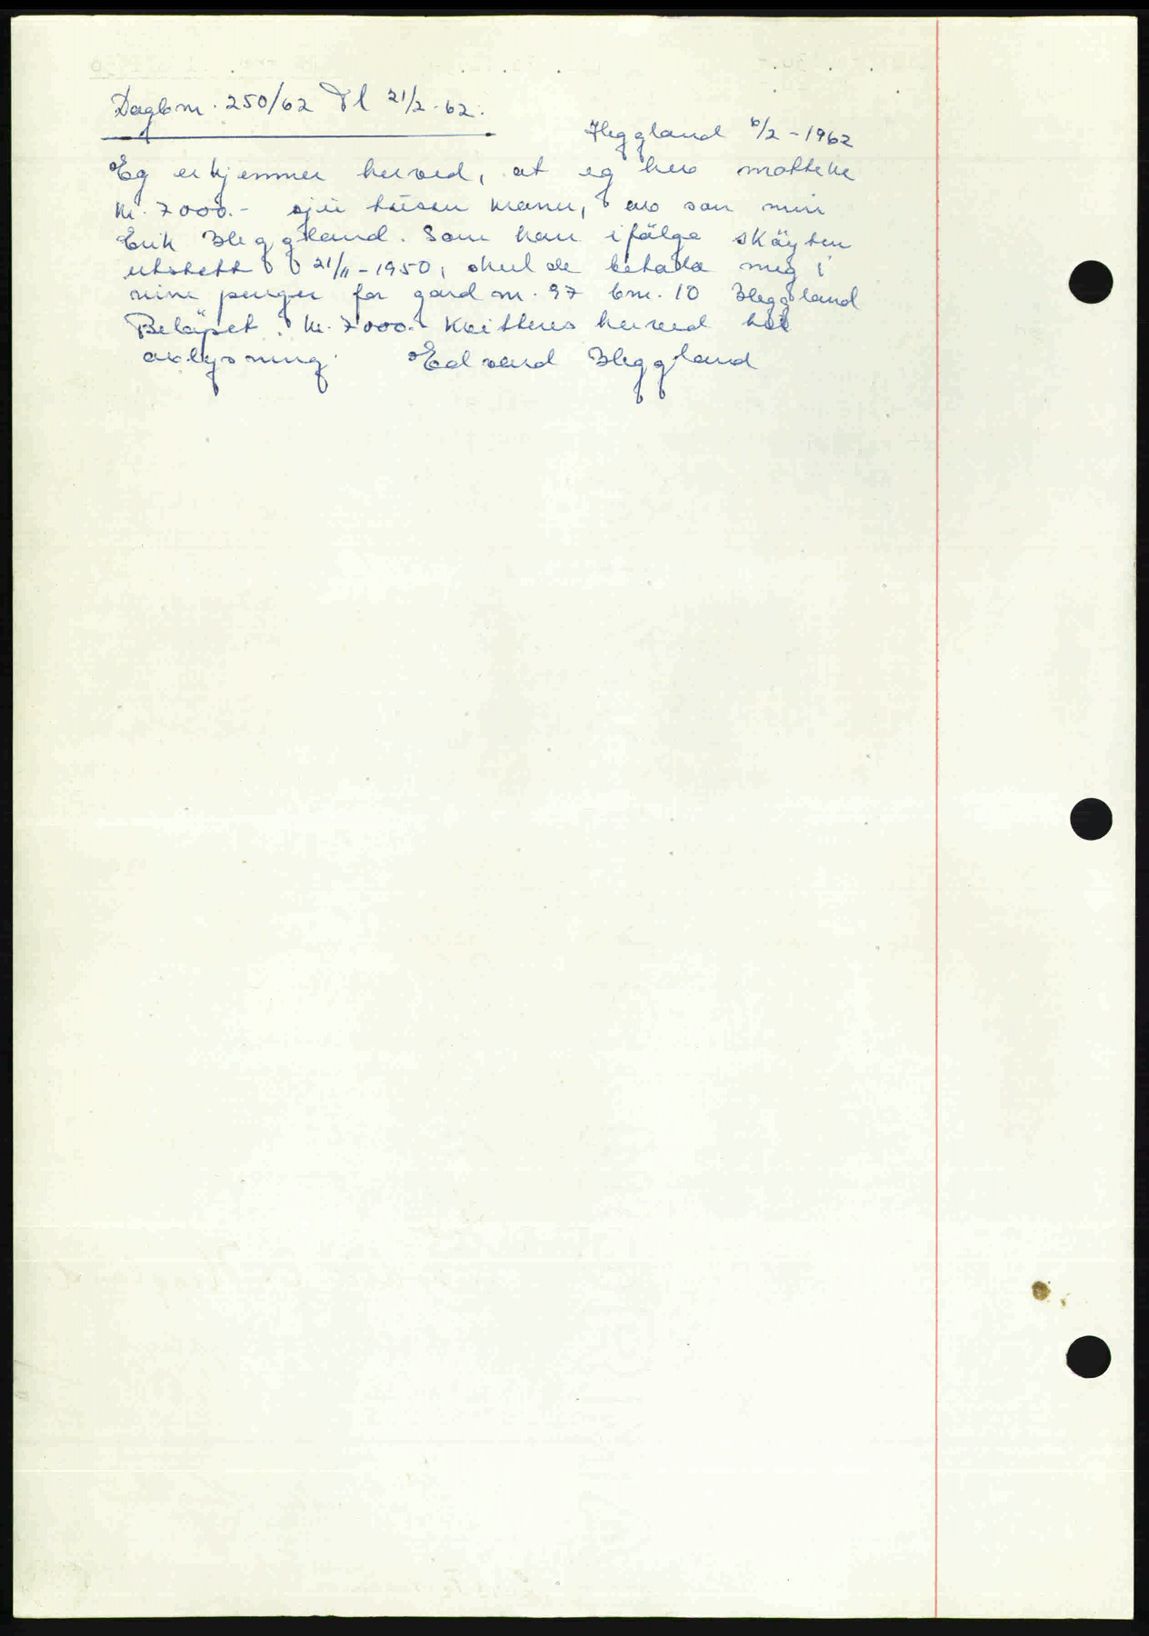 Dagbnr. 250/62 Tl 21/2-62.
Heggland 6/2-1962
Eg erkjenner herved, at eg hev motteke
kr. 7000.- sju tusen kroner, av son min
Erik Heggland. Som han ifølge skøyten
utstett 21/11-1950, skulde betala meg i
rine penger for gard nr. 97 bnr. 10 Heggland
Beløpet kr. 7000.- Kvitteres herved til
avlysning. Edvard Heggland